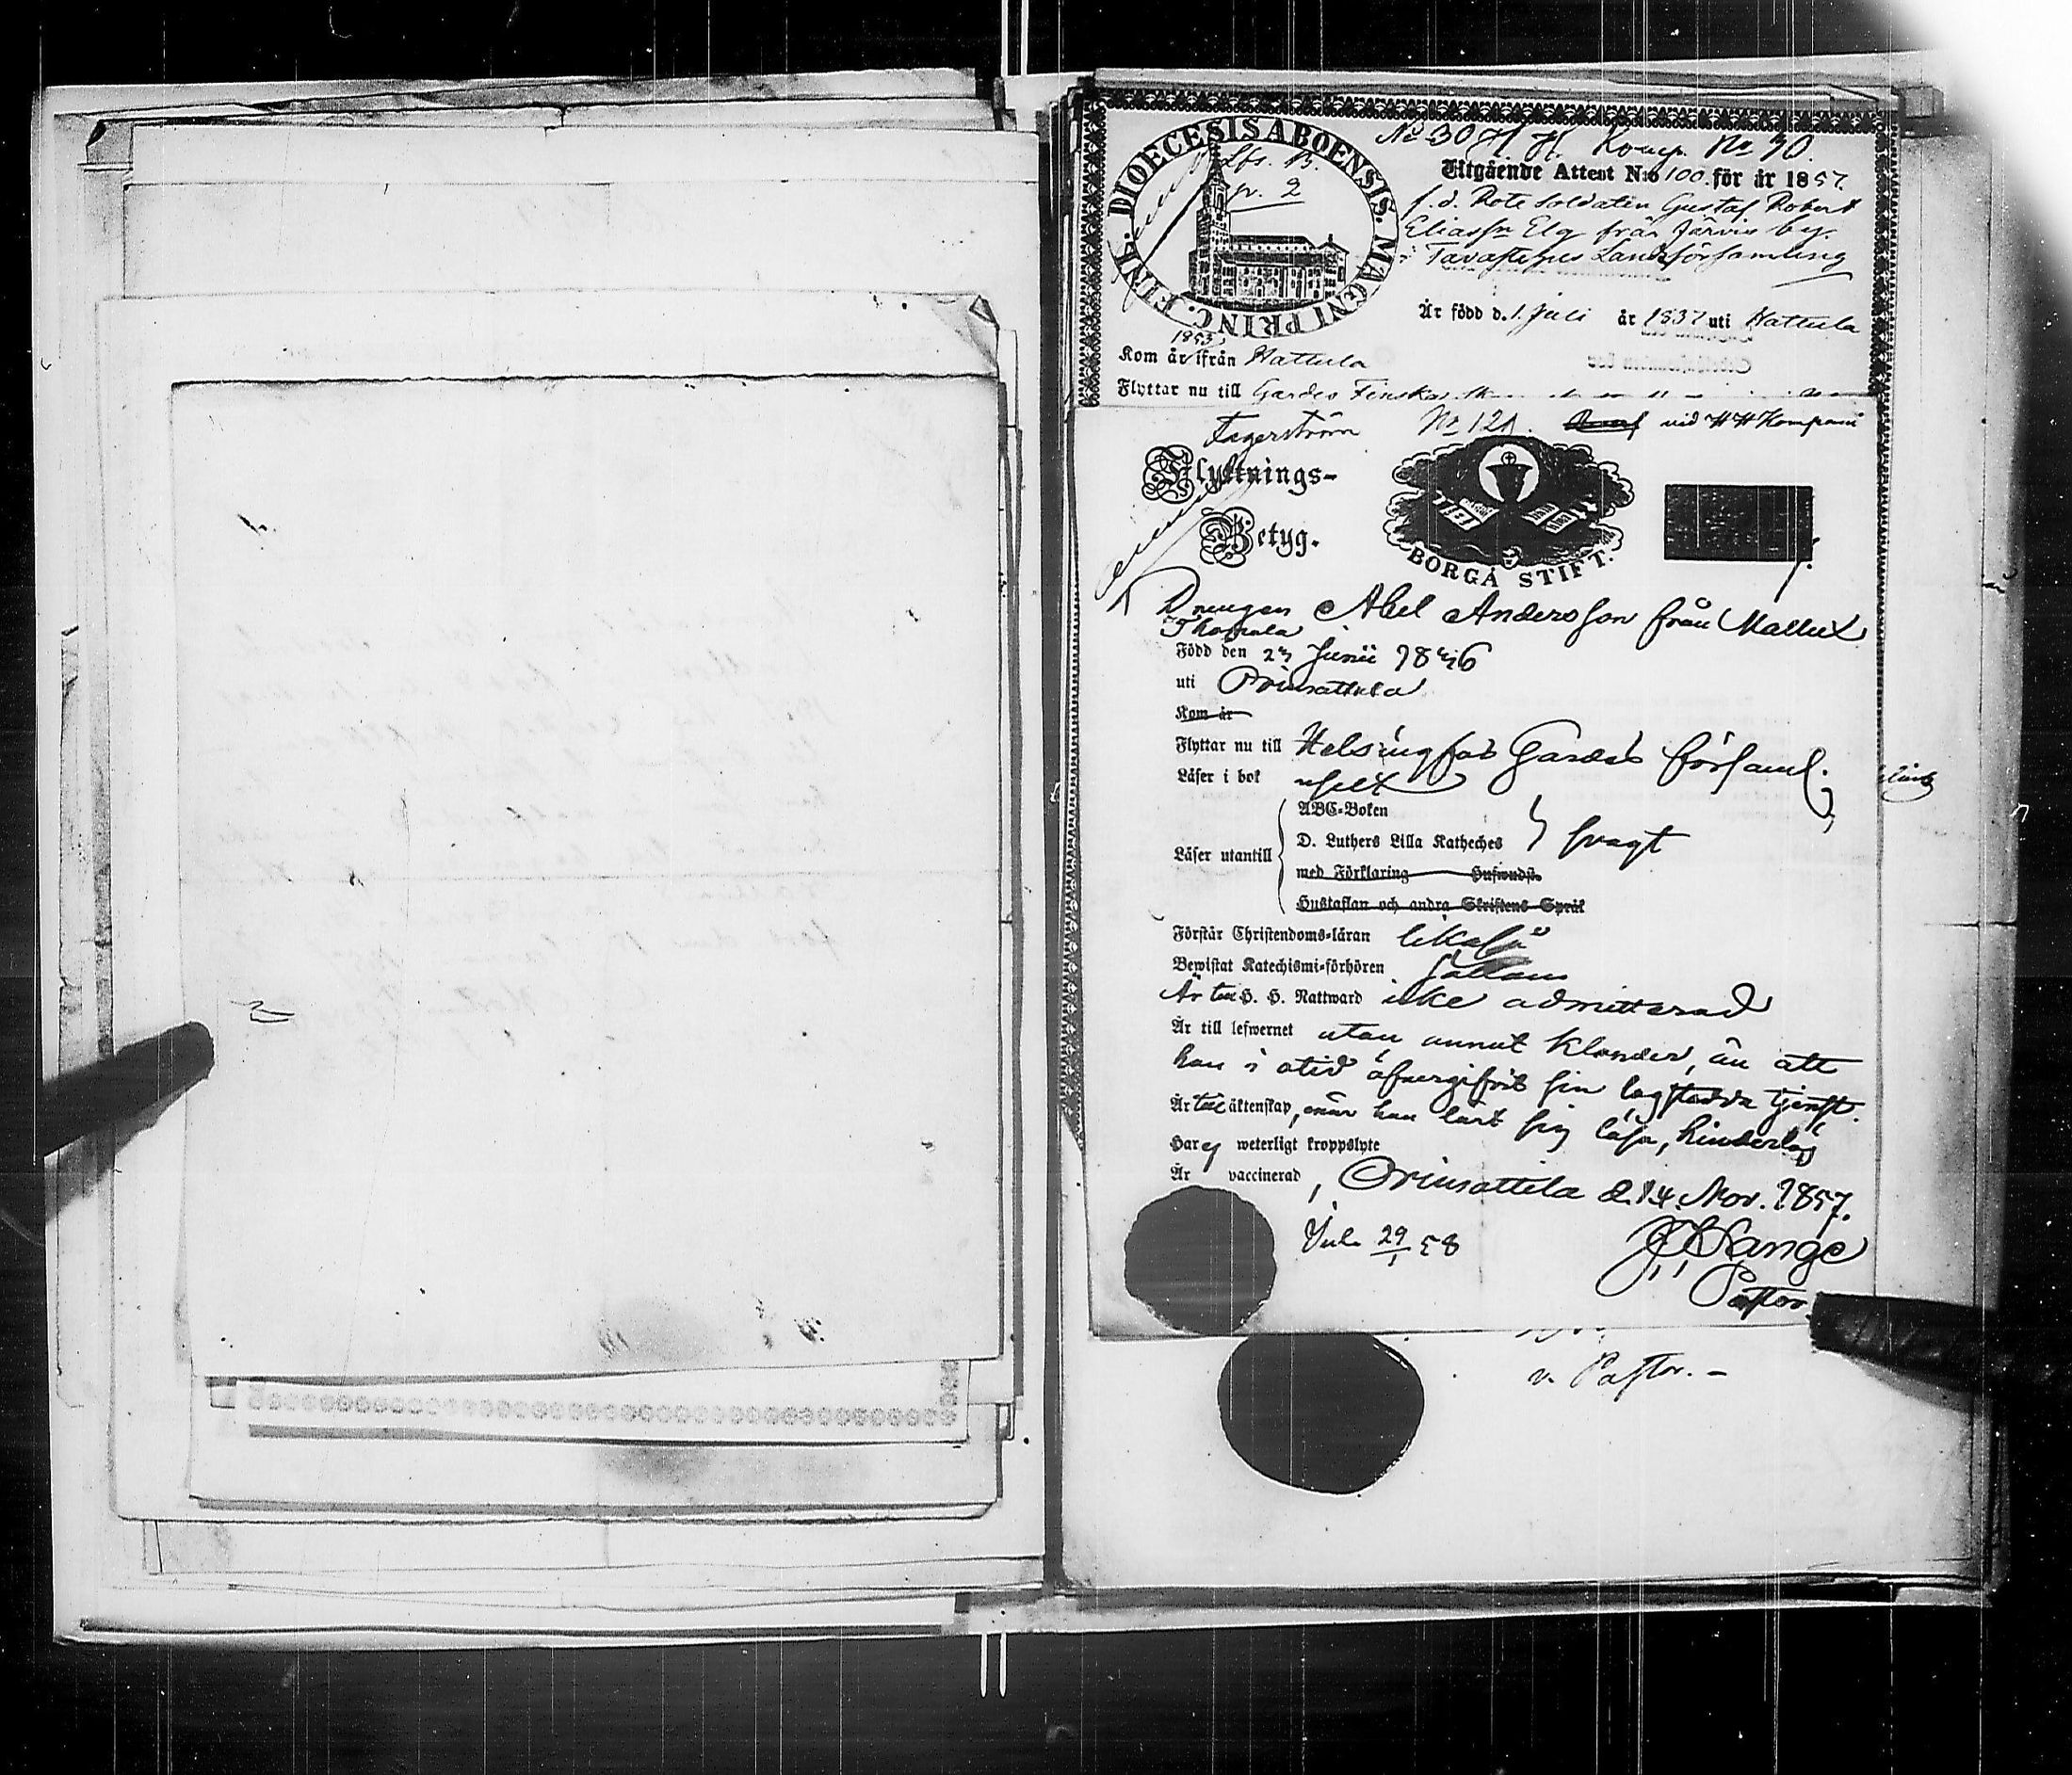 No 30 H. H. Komp. No 70.
DIOECESIS ABOENSIS. MAGNI PRINC. FINL.
Lfs. B.
p. 2
Utgående Attest N:o 100. för år 1857.
f. d. Rote soldaten Gustaf Robert
Eliasson Elg från Järvis by.
Tavastehus Landsförsamling
Är född d. 1. Juli år 1837 uti Hattula
1853
Kom år ifrån Hattula
Flyttar nu till Gardes Finska
Fagerström No 121. vid H H Kompani
Flyttnings-
Betyg.
BORGÅ STIFT.
Drengen Abel Andersson från Mallux
Född den 23 Junii 1836
uti Orimattila
Kom år
Flyttar nu till Helsingfors Gardes församl.
Läser i bok uselt
ABC-Boken
D. Luthers Lilla Katheches } svagt
Läser utantill
med Förklaring Husewudst.
Hustaflan och andra Skriftens Språk
Förstår Christendoms-läran likaså
Bewistat Katechismi-förhören sällan
Är till H. H. Nattward icke admitterad
Är till lefwernet utan annat klander, än att
han i otid öfvergifvit sin lagstadda tjenst.
Är till äktenskap, när han lärt sig läsa, hinderlös
Har ej weterligt kroppslyte
Är vaccinerad, Orimattila d. 14. Nov. 1857.
29/1 58
Lange
Pastor.
v. Pastor. -